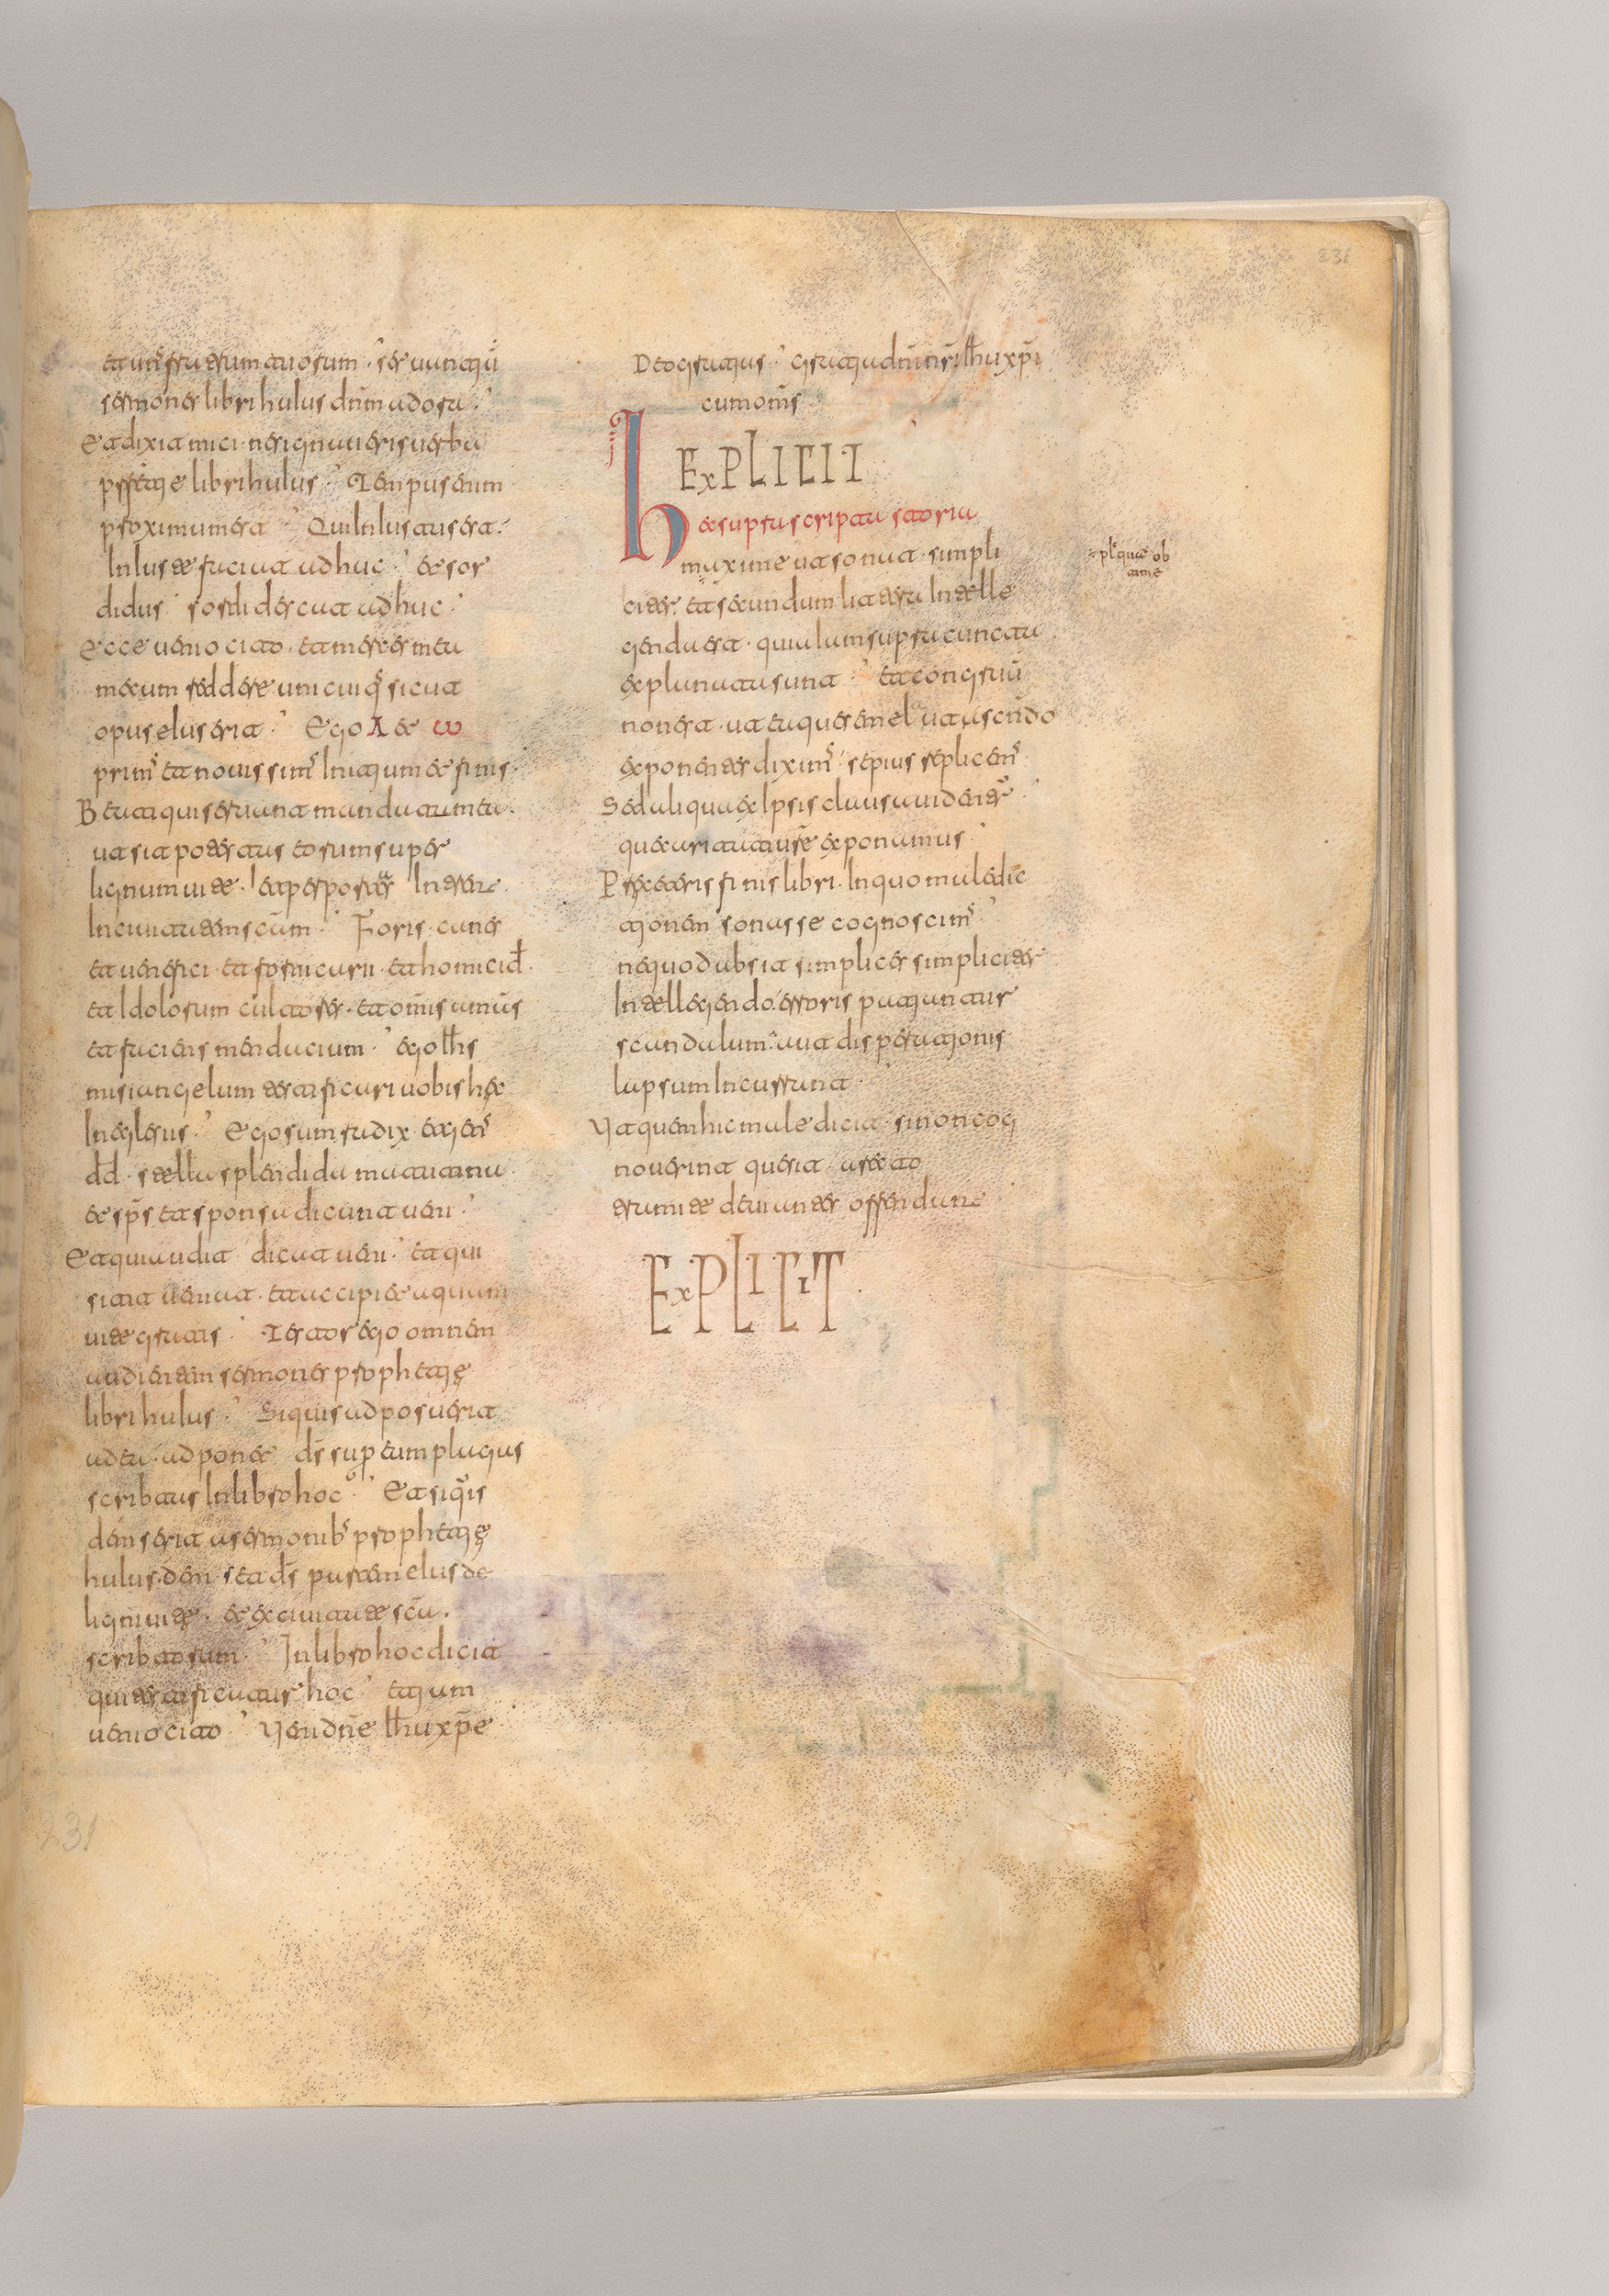 et umˢ fratrum tuorum · serbantiū
sermones libri huius dn̄m adora ·
Et dixit mici · ne signaueris uerba
pffetie libri huius · Tempus enim
proximum est · Qui Iniustus est ·
Iniuste faciat adhuc · et sor
didus sordidescat adhuc ·
Ecce uenio cito · et merces mea
mecum reddere unicuiqˢ sicut
opus eius erit · Ego Λ et ω
primˢ et nouissimˢ Initium et finis ·
Beati qui seruant mandata mea ·
ut sit potestas eorum super
lignum uite · et per portas Intrent
In ciuitatem scām · Foris canes
et uenefici · et fornicarii · et homicid̄ ·
et Idolorum cultores · et om̄is amās
et faciens mendacium · ego Ih̄s
misi angelum testificari uobis hęc
In eglesiis · Ego sum radix et genˢ
dd̄ · stella splendida matutina ·
et sp̄s et sponsa dicunt ueni ·
Et qui audit dicat ueni · et qui
sitit ueniat · et accipiet aquam
uite gratis · Testor ego omnem
audientem sermones prophetię
libri huius · Si quis adposuerit
ad ea · adponet ds̄ super eum plagas
scribtas In libro hoc · Et si qis
demserit a sermonibˢ prophetię
huius · ds̄ partem eius de
ligni uitę · et ex ciuitate scā ·
scribtorum · In libro hoc dicit
qui testificatur hoc · etium
uenio cito · Ueni dn̄e Ih̄u xp̄e
Deo gratias · gratia dn̄i nr̄i Ih̄u xp̄i
cum om̄s
EXPLICIT
Hec suprascripta storia
maxime ut sonat · simpli
citer et secundum littera Intelle
genda est · quia Iam supra cuncta
explanata sunt · et congruū
non est · ut ea que semel ut ascendo
exponentes diximˢ · sepius replicemˢ ·
Sed aliqua ex Ipsis clausa uidentˢ
que curiatature exponamus ·
Precteris finis libri · In quo maledic
tionem sonasse cognoscimˢ ·
ne quod absit simplices simpliciter
Intellegendo erroris patiantur
scandalum · aut disperationis
lapsum Incurrant ·
Ut quem hic maledicit · si non cog
nouerint que sit · a recto
trumite deuiantes offendunt
EXPLICIT